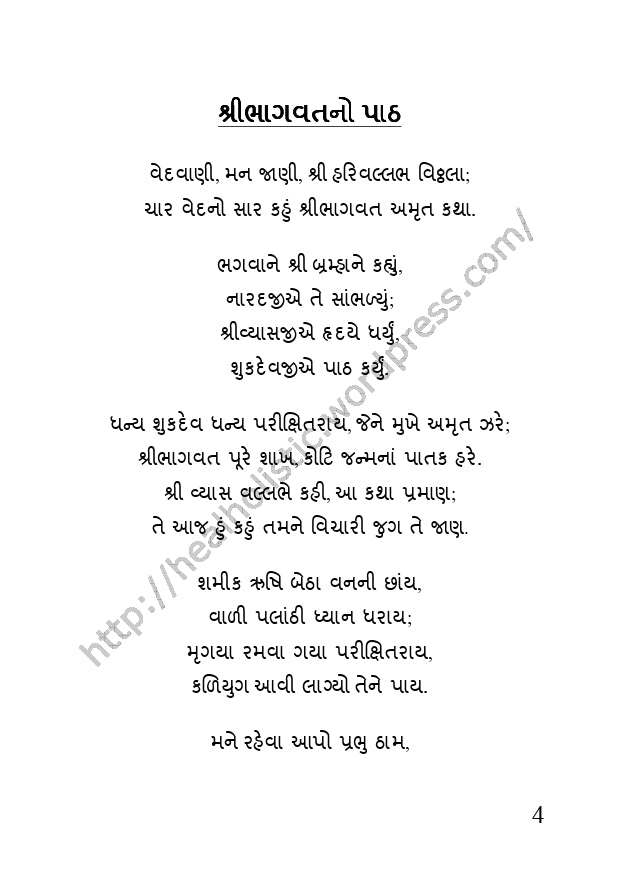 શ્રીભાગવતનો પાઠ
વેદવાણી, મન જાણી, શ્રી હરિવલ્લભ વિઠ્ઠલા;
ચાર વેદનો સાર કહું શ્રીભાગવત અમૃત કથા.
ભગવાને શ્રી બ્રમ્હાને કહ્યું,
નારદજીએ તે સાંભળ્યું;
શ્રીવ્યાસજીએ હૃદયે ધર્યું,
શુકદેવજીએ પાઠ કર્યું.
ધન્ય શુકદેવ ધન્ય પરીક્ષિતરાય, જેને મુખે અમૃત ઝરે;
શ્રીભાગવત પૂરે શાખ, કોટિ જન્મનાં પાતક હરે.
શ્રી વ્યાસ વલ્લભે કહી, આ કથા પ્રમાણ;
તે આજ હું કહું તમને વિચારી જુગ તે જાણ.
શમીક ઋષિ બેઠા વનની છાંય,
વાળી પલાંઠી ધ્યાન ધરાય;
મૃગયા રમવા ગયા પરીક્ષિતરાય,
કળિયુગ આવી લાગ્યો તેને પાય.
મને રહેવા આપો પ્રભુ ઠામ,
4
http://healholistic.wordpress.com/